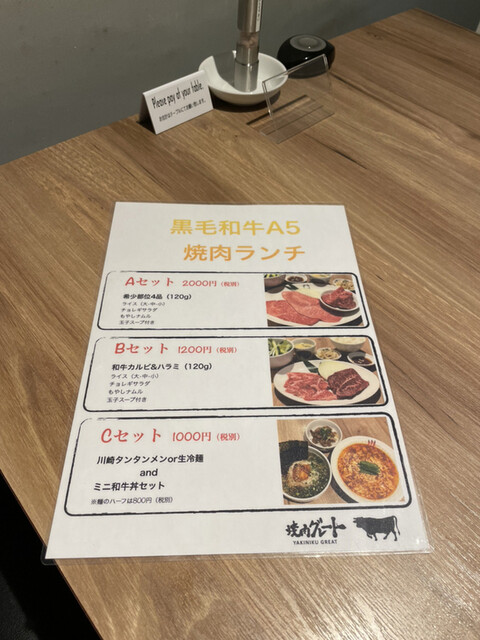 Please pay at your table.
お会計はテーブルにてお願い致します。
黒毛和牛A5
焼肉ランチ
Aセット 2000円（税別）
希少部位4品（120g）
ライス（大・中・小）
チョレギサラダ
もやしナムル
玉子スープ付き
Bセット 1200円（税別）
和牛カルビ&ハラミ（120g）
ライス（大・中・小）
チョレギサラダ
もやしナムル
玉子スープ付き
Cセット 1000円（税別）
川崎タンタンメンor生冷麺
and
ミニ和牛丼セット
※麺のハーフは800円（税別）
焼肉グレート
YAKINIKU GREAT